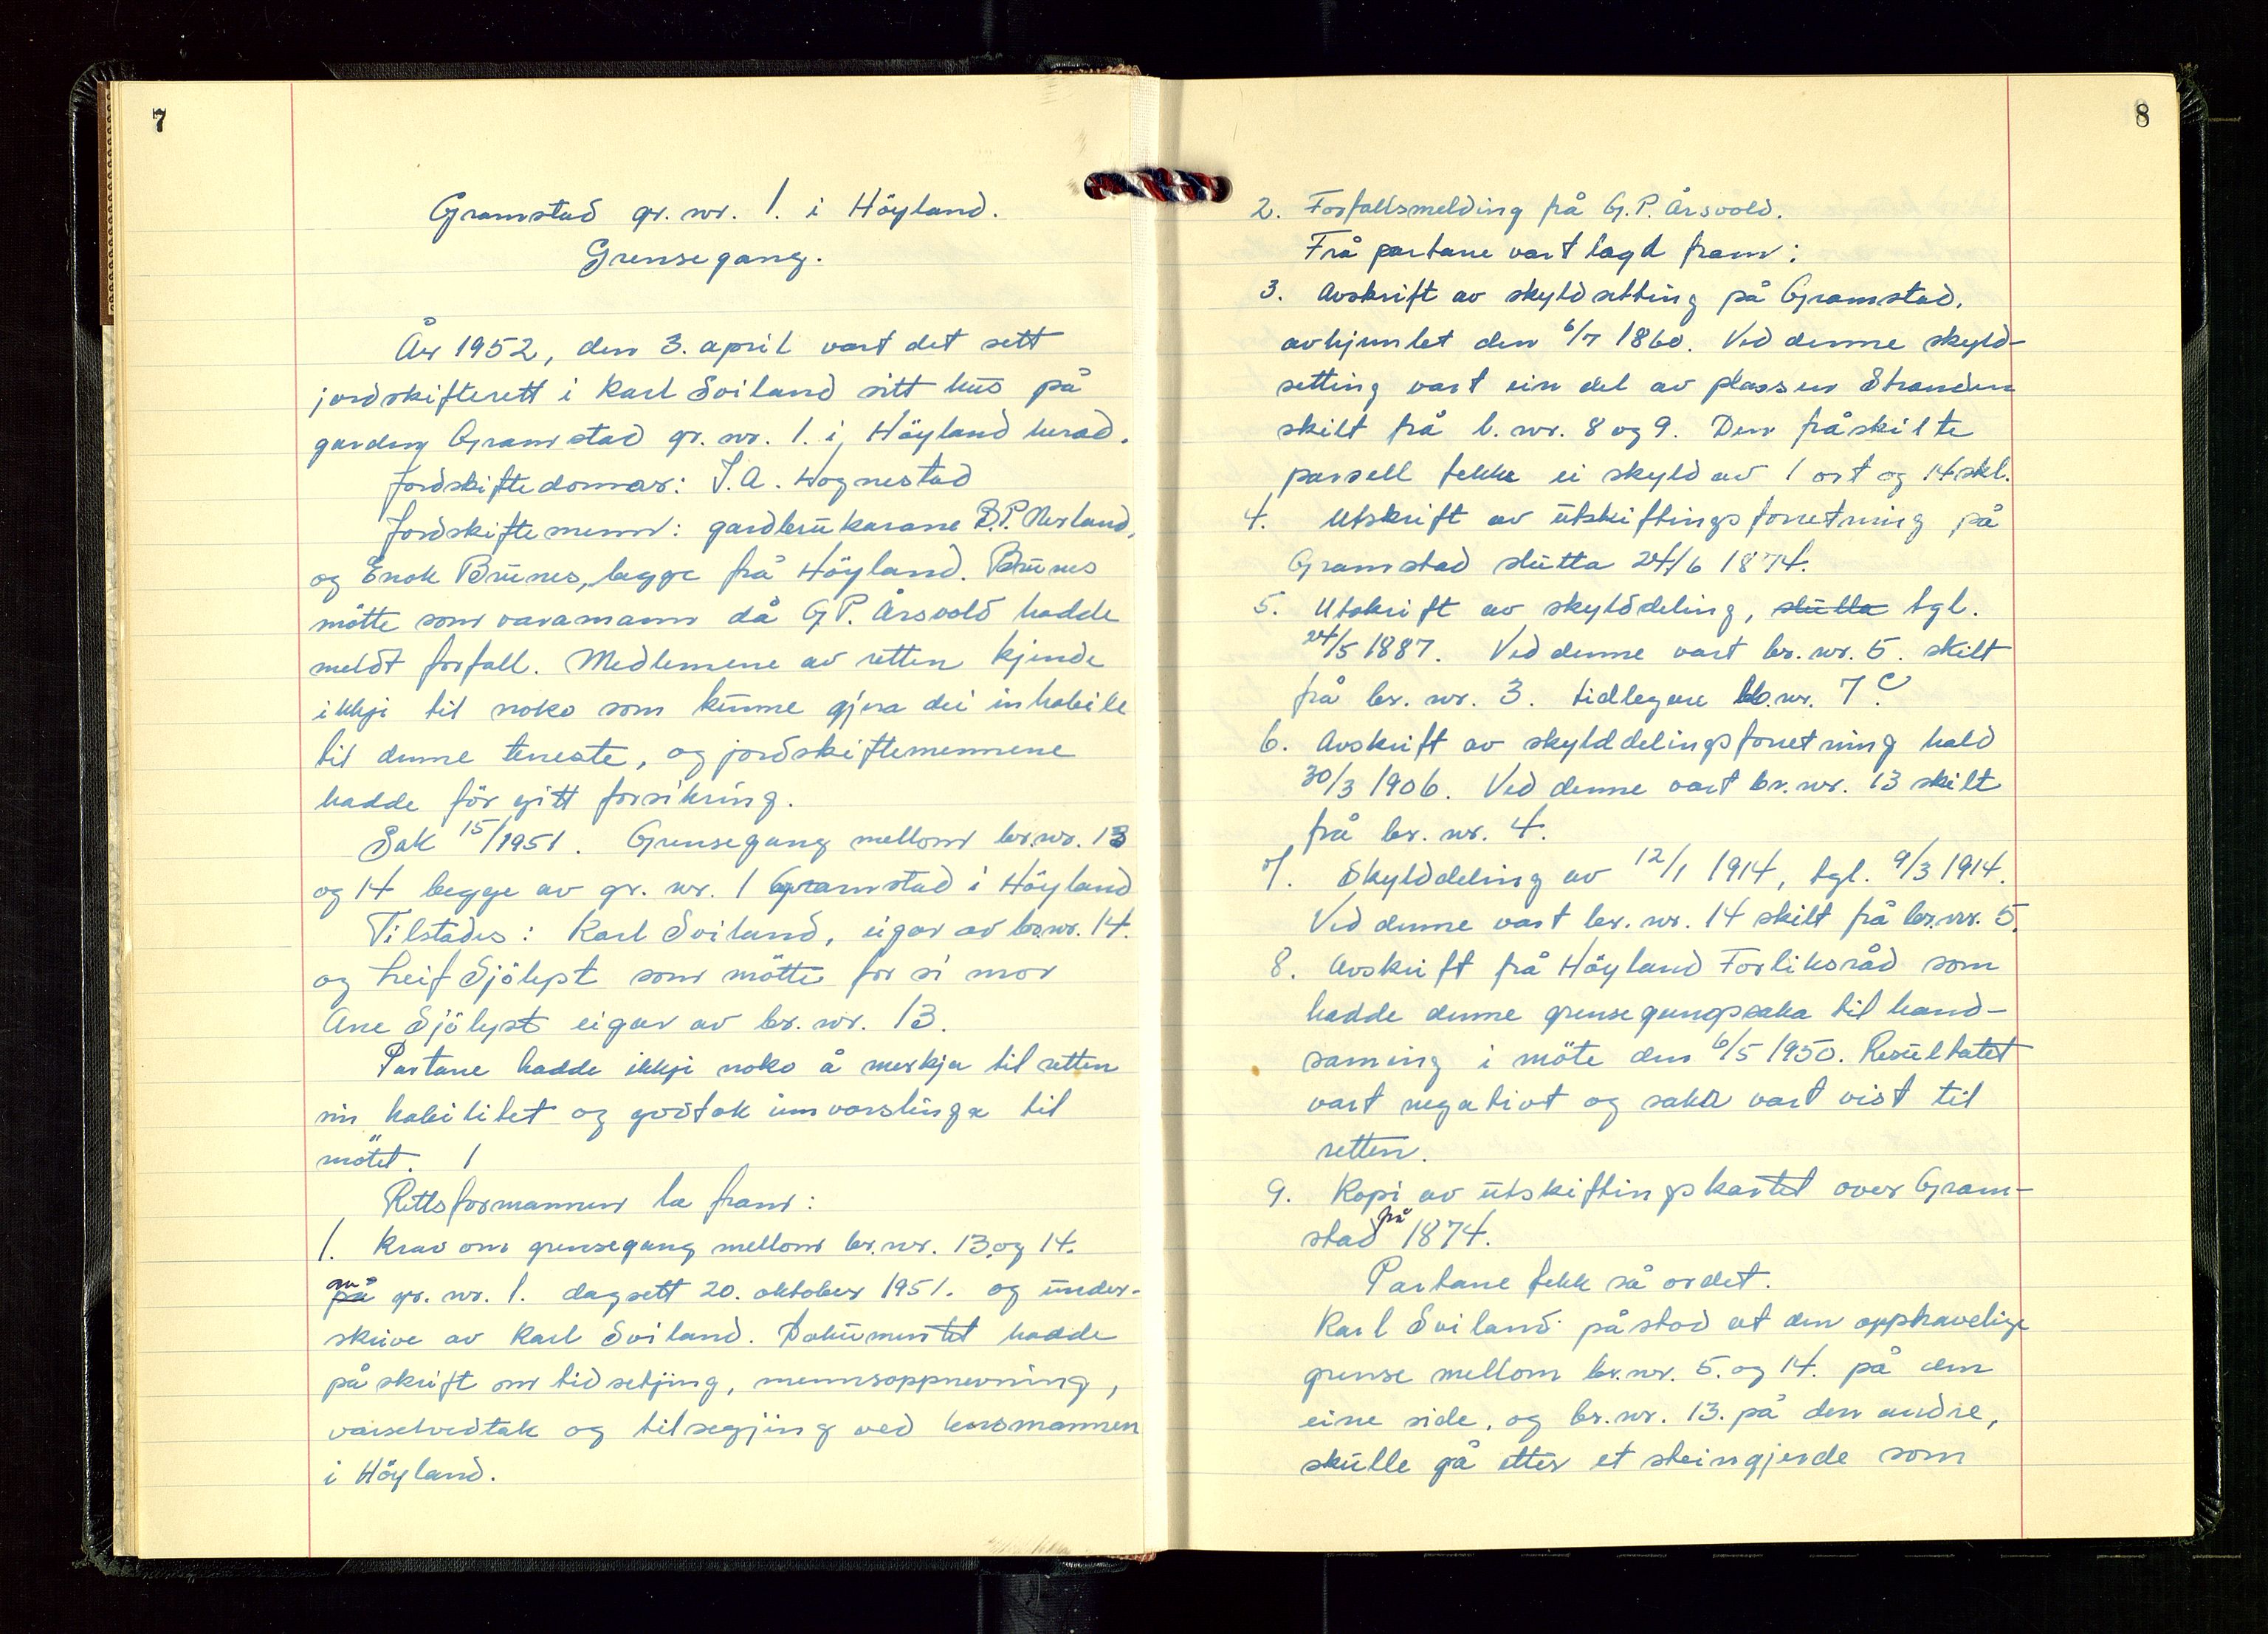 7
Gramstad gr. nr. 1. i Höyland.
Grensegang.
År 1952, den 3. april vart det sett
jordskifterett i Karl Sviland sitt hus på
garden Gramstad gr. nr. 1. i Höyland herad.
Jordskiftedomar: J.A. Hognestad
Jordskiftemenn: gardbrukarane B.P. Nesland,
og Enok Brunes, begge frå Höyland. Brunes
mötte som varamann då G P. Årsvold hadde
meldt forfall. Medlemene av retten kjende
ikkje til noko som kunne gjera dei inhabile
til denne teneste, og jordskiftemennene
hadde för gitt forsikring.
Sak 15/1951. Grensegang mellom br.nr. 13
og 14 begge av gr. nr. 1 Gramstad i Höyland
Tilstades: Karl Sviland, eigar av br.nr. 14.
og Leif Sjölyst som mötte for si mor
Ane Sjölyst eigar av br. nr. 13.
Partane hadde ikkje noko å merkja til retten
sin habilitet og godtok innvarslinga til
mötet.
Rettsformannen la fram:
1. Krav om grensegang mellom br.nr. 13. og 14.
på av gr. nr. 1. dagsett 20. oktober 1951. og under-
skrive av Karl Sviland. Dokumentet hadde
påskrift om tidsetjing, mennsoppnevning,
varselvedtak og tilsegjing ved lensmannen
i Höyland.
8
2. Forfallsmelding frå G.P. Årsvold.
Frå partane vart lagd fram:
3. Avskrift av skyldsetting på Gramstad,
avhjemlet den 6/7 1860. Ved denne skyld-
setting vart ein del av plassen Stranden
skilt frå b. nr. 8 og 9. Den fråskilte
parsell fekk ei skyld av 1 ort og 14 skl.
4. Utskrift av utskiftingsforretning på
Gramstad slutta 24/6 1874.
5. Utskrift av skylddeling, slutta tgl.
24/5 1887. Ved denne vart br. nr. 5. skilt
frå br. nr. 3. tidlegare lb.nr. 7 c.
6. Avskrift av skylddelingsforretning hald
30/3 1906. Ved denne vart br. nr. 13 skilt
frå br. nr. 4.
7. Skylddeling av 12/1 1914, tgl. 9/3 1914.
Ved denne vart br. nr. 14 skilt frå br.nr. 5.
8. Avskrift frå Höyland Forliksråd som
hadde denne grensegangssaka til hand-
saming i möte den 6/5 1950. Resultatet
vart negativt og saka vart vist til
retten.
9. Kopi av utskiftingskartet over Gram-
stad frå 1874.
Partane fekk så ordet.
Karl Sviland påstod at den opphavelige
grense mellom br.nr. 5. og 14. på den
eine side, og br.nr. 13. på den andre,
skulle gå etter et steingjerde som